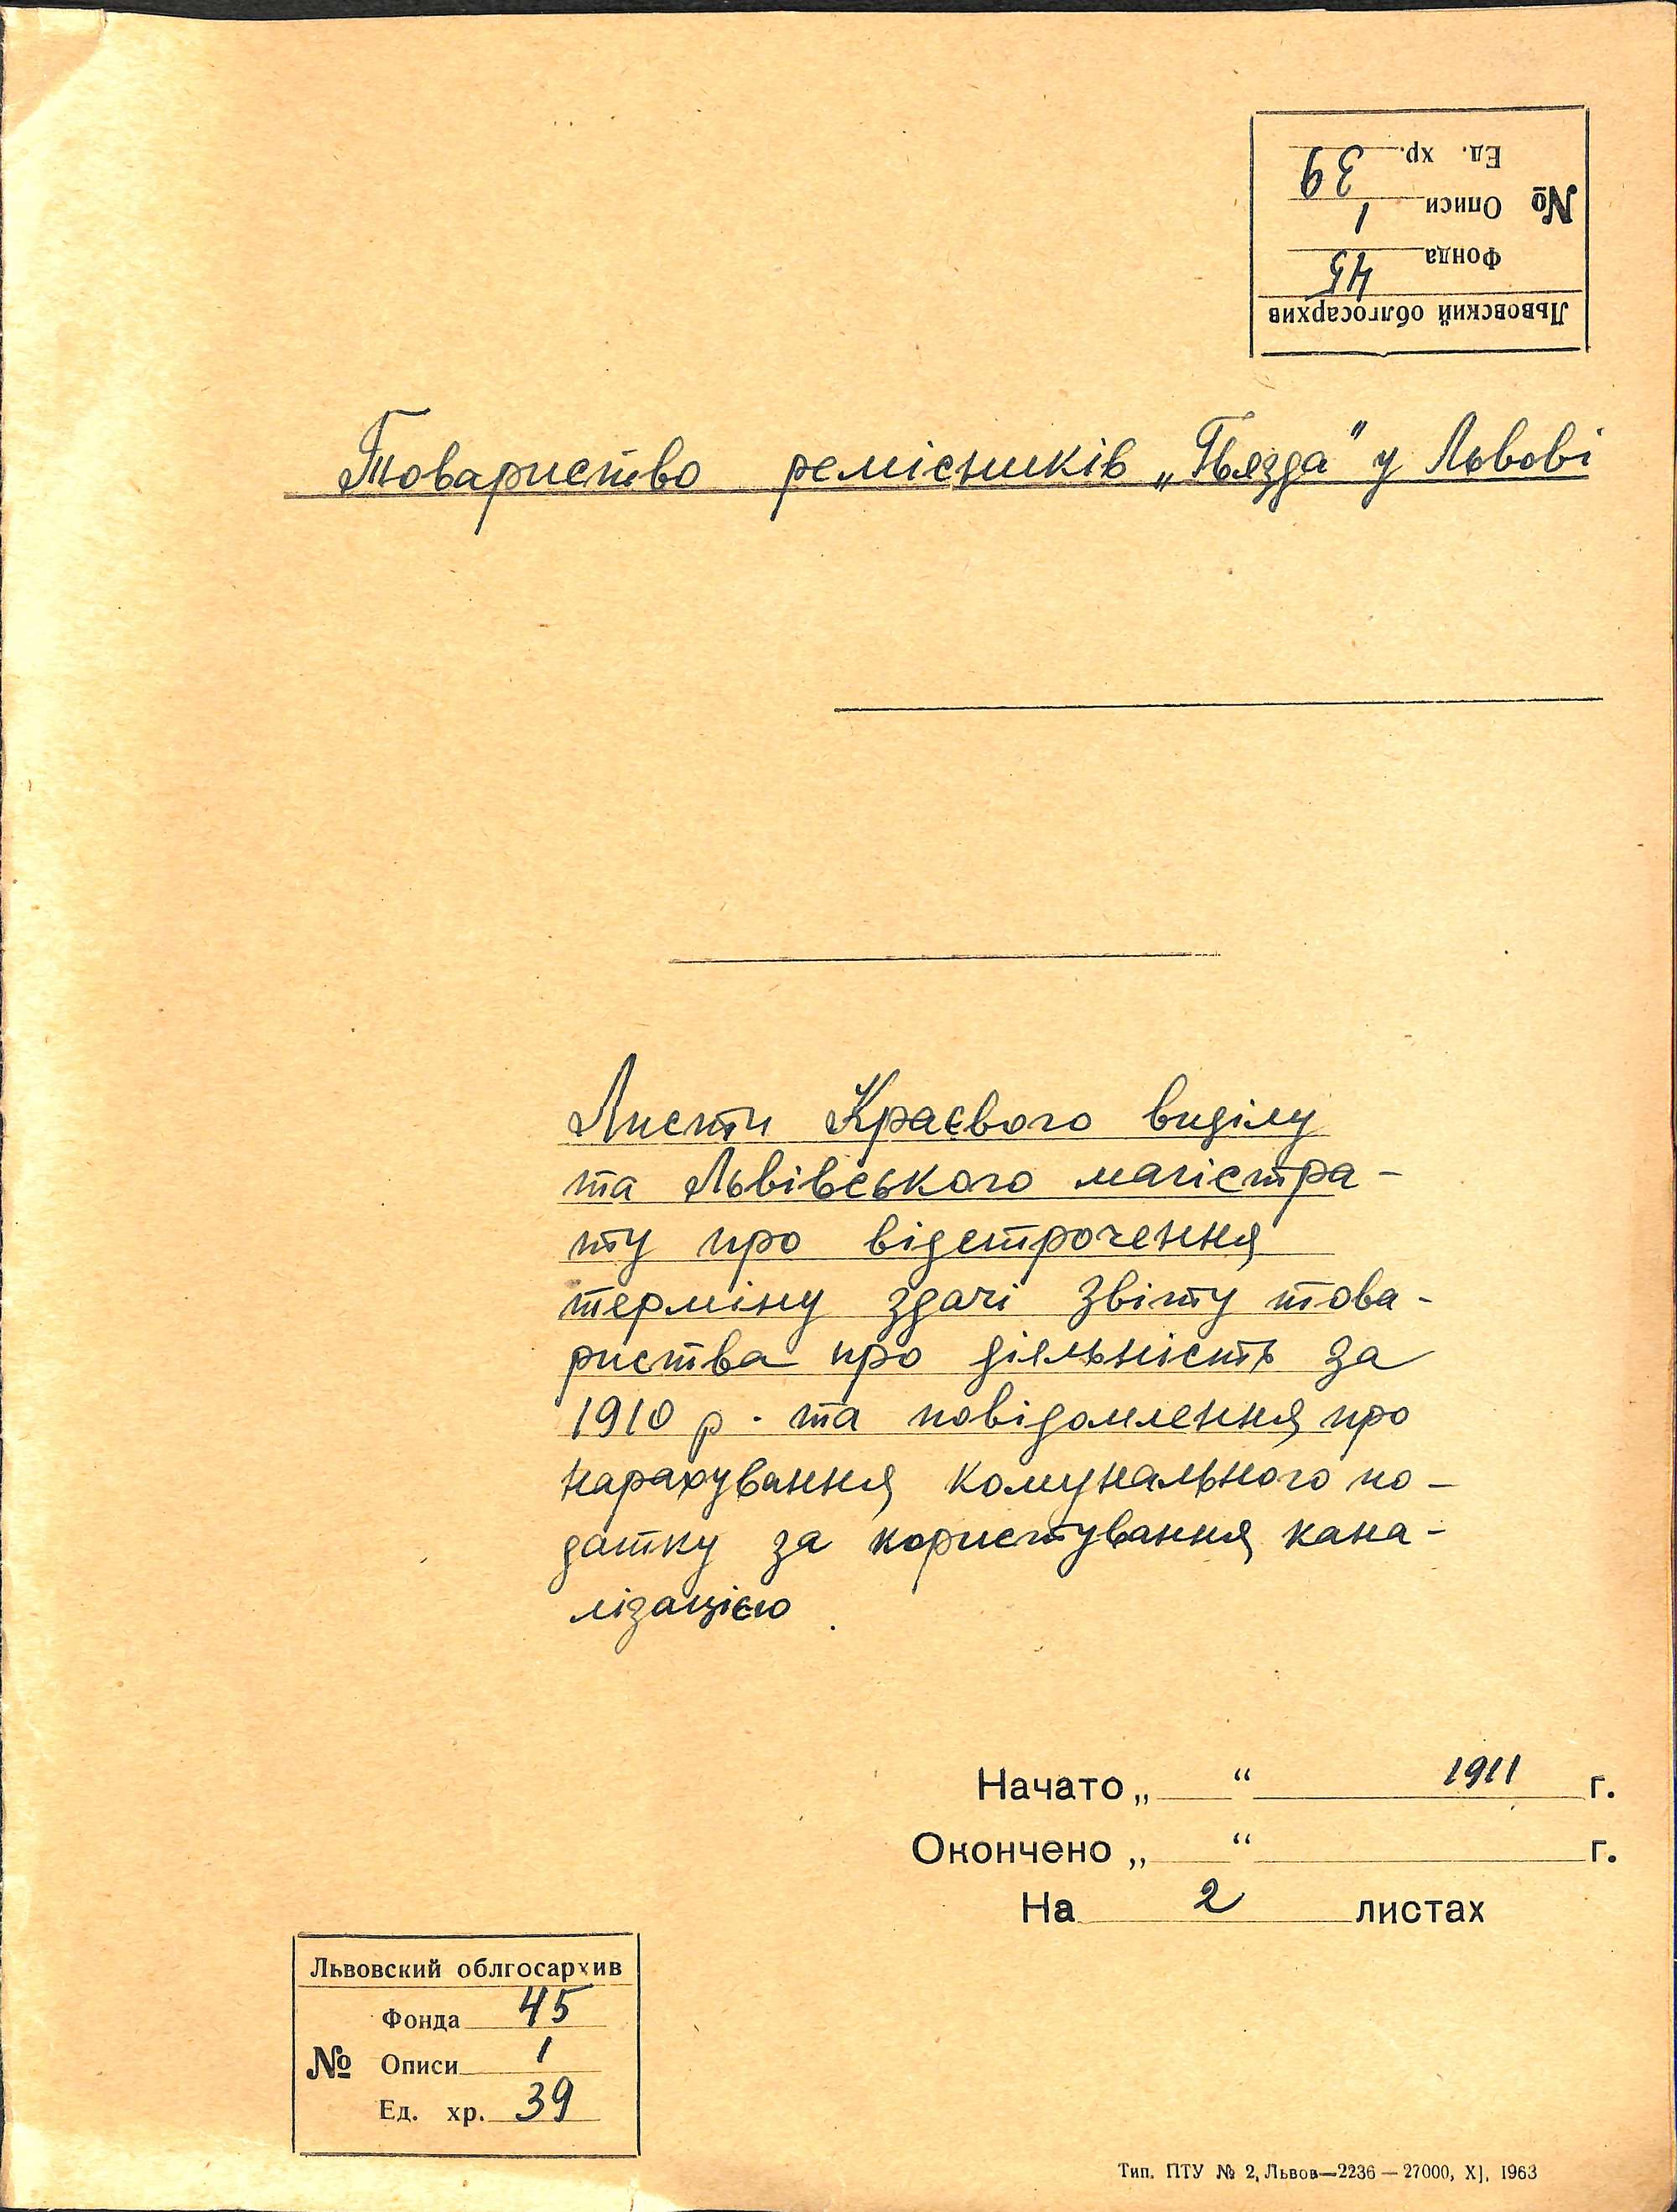 Львовский облгосархив
Фонда 45
№ Описи 1
Ед. хр. 39
Товариство ремісників „Гвязда" у Львові
Листи Краєвого виділу
та Львівського магістра-
ту про відстрочення
терміну здачі звіту това-
риства про діяльність за
1910 р. та повідомлення про
нарахування комунального по-
датку за користування кана-
лізацією.
Начато „ “ 1911 г.
Окончено „ “ г.
На 2 листах
Львовский облгосархив
Фонда 45
№ Описи 1
Ед. хр. 39
Тип. ПТУ № 2, Львов—2236—27000, XI, 1963